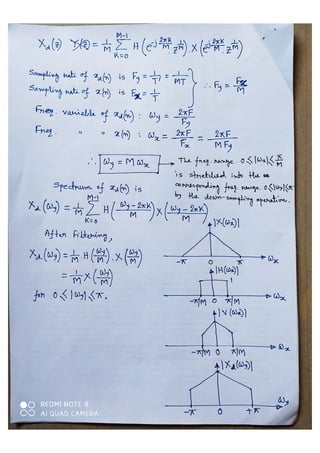 X_d(z) = 1/M Σ_{K=0}^{M-1} H(e^{-j 2πK/M} z^{1/M}) X(e^{-j 2πK/M} z^{1/M})
Sampling rate of x_d(n) is F_y = 1/T' = 1/MT
Sampling rate of x(n) is F_x = 1/T
∴ F_y = F_x/M
Freq. variable of x_d(n) : ω_y = 2πF/F_y
Freq. " " x(n) : ω_x = 2πF/F_x = 2πF/M F_y
∴ ω_y = M ω_x
The freq. range 0 ≤ |ω_x| ≤ π/M
is stretched into the
corresponding freq. range 0 ≤ |ω_y| ≤ π
by the down-sampling operation.
Spectrum of x_d(n) is
X_d(ω_y) = 1/M Σ_{K=0}^{M-1} H(ω_y - 2πK/M) X(ω_y - 2πK/M)
After Filtering,
X_d(ω_y) = 1/M H(ω_y/M) . X(ω_y/M)
= 1/M X(ω_y/M)
for 0 ≤ |ω_y| ≤ π.
|X(ω_x)|
-π 0 π ω_x
|H(ω_x)|
1
-π/M 0 π/M ω_x
|V(ω_x)|
-π/M 0 π/M ω_x
|X_d(ω_y)|
-π 0 +π ω_y
REDMI NOTE 8
AI QUAD CAMERA